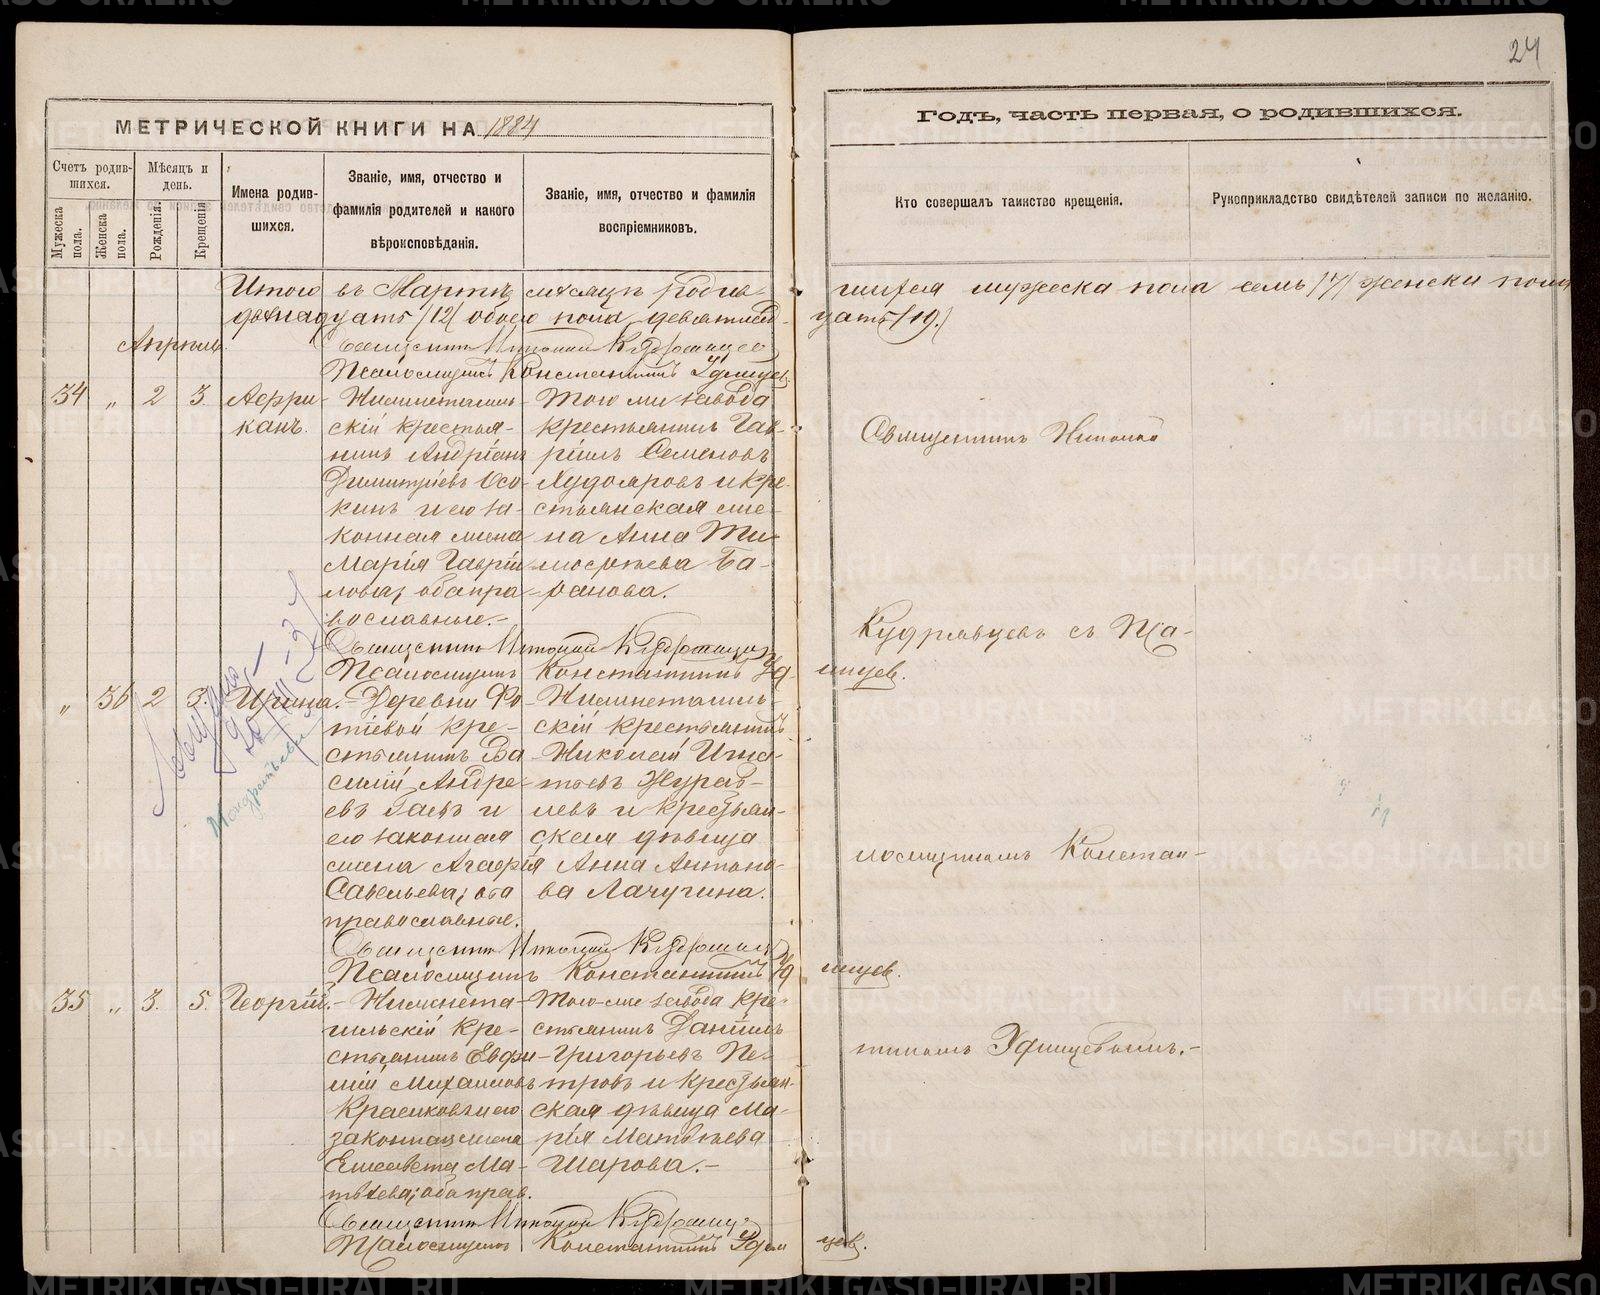 24
МЕТРИЧЕСКОЙ КНИГИ НА 1884
Годъ, часть первая, о родившихся.
Счетъ родив-
шихся.
Мужеска пола.
Женска пола.
Мѣсяцъ и
день.
Рожденія.
Крещенія
Имена родив-
шихся.
Званіе, имя, отчество и
фамилія родителей и какого
вѣроисповѣданія.
Званіе, имя, отчество и фамилія
воспріемниковъ.
Кто совершалъ таинство крещенія.
Рукоприкладство свидѣтелей записи по желанію.
Итого въ Мартѣ мѣсяцѣ родив-
шихся мужеска пола семь /7/ женска пола
двѣнадцать /12/ обоего пола девятнад-
цать /19./
Апрѣль.
Священникъ Кудрявцев
Псаломщикъ Константинъ
34 „ 2 3.
Африканъ.
Нижнетагиль-
скій крестья-
нинъ Андріанъ
Димитріевъ Осо-
кинъ и его за-
конная жена
Марія Гаврии-
лова; оба пра-
вославные.-
Того же завода
крестьянинъ Гав-
ріилъ Семеновъ
Худояровъ и кре-
стьянская же-
на Анна Ти-
моѳеева Ба-
ранова.
Священникъ Кудрявцевъ
Псаломщикъ Константинъ
„ 36 2 3.
Ирина.-
Деревни Фо-
тѣевой кре-
стьянинъ Ва-
силій Андре-
евъ Гаевъ и
его законная
жена Агафія
Савельева; оба
православные.
Нижнетагиль-
скій крестьянинъ
Николай Игна-
тьевъ Журав-
левъ и крестьян-
ская дѣвица
Анна Антоно-
ва Лачугина.
Священникъ Кудрявцев
Псаломщикъ Константинъ
35 „ 3. 5.
Георгій.-
Нижнета-
гильскій кре-
стьянинъ Евфи-
мій Михаиловъ
Красиковъ и его
законная жена
Елисавета Ма-
твѣева; оба прав.
Того-же завода кре-
стьянинъ Даніилъ
Григорьевъ Пе-
тровъ и крестьян-
ская дѣвица Ма-
рія Матвѣева
Шарова.-
Священникъ Кудрявцев
Псаломщикъ Константинъ
Священникъ Николай
Кудрявцевъ съ Пса-
ломщикомъ Констан-
тиномъ
METRIKI.GASO-URAL.RU